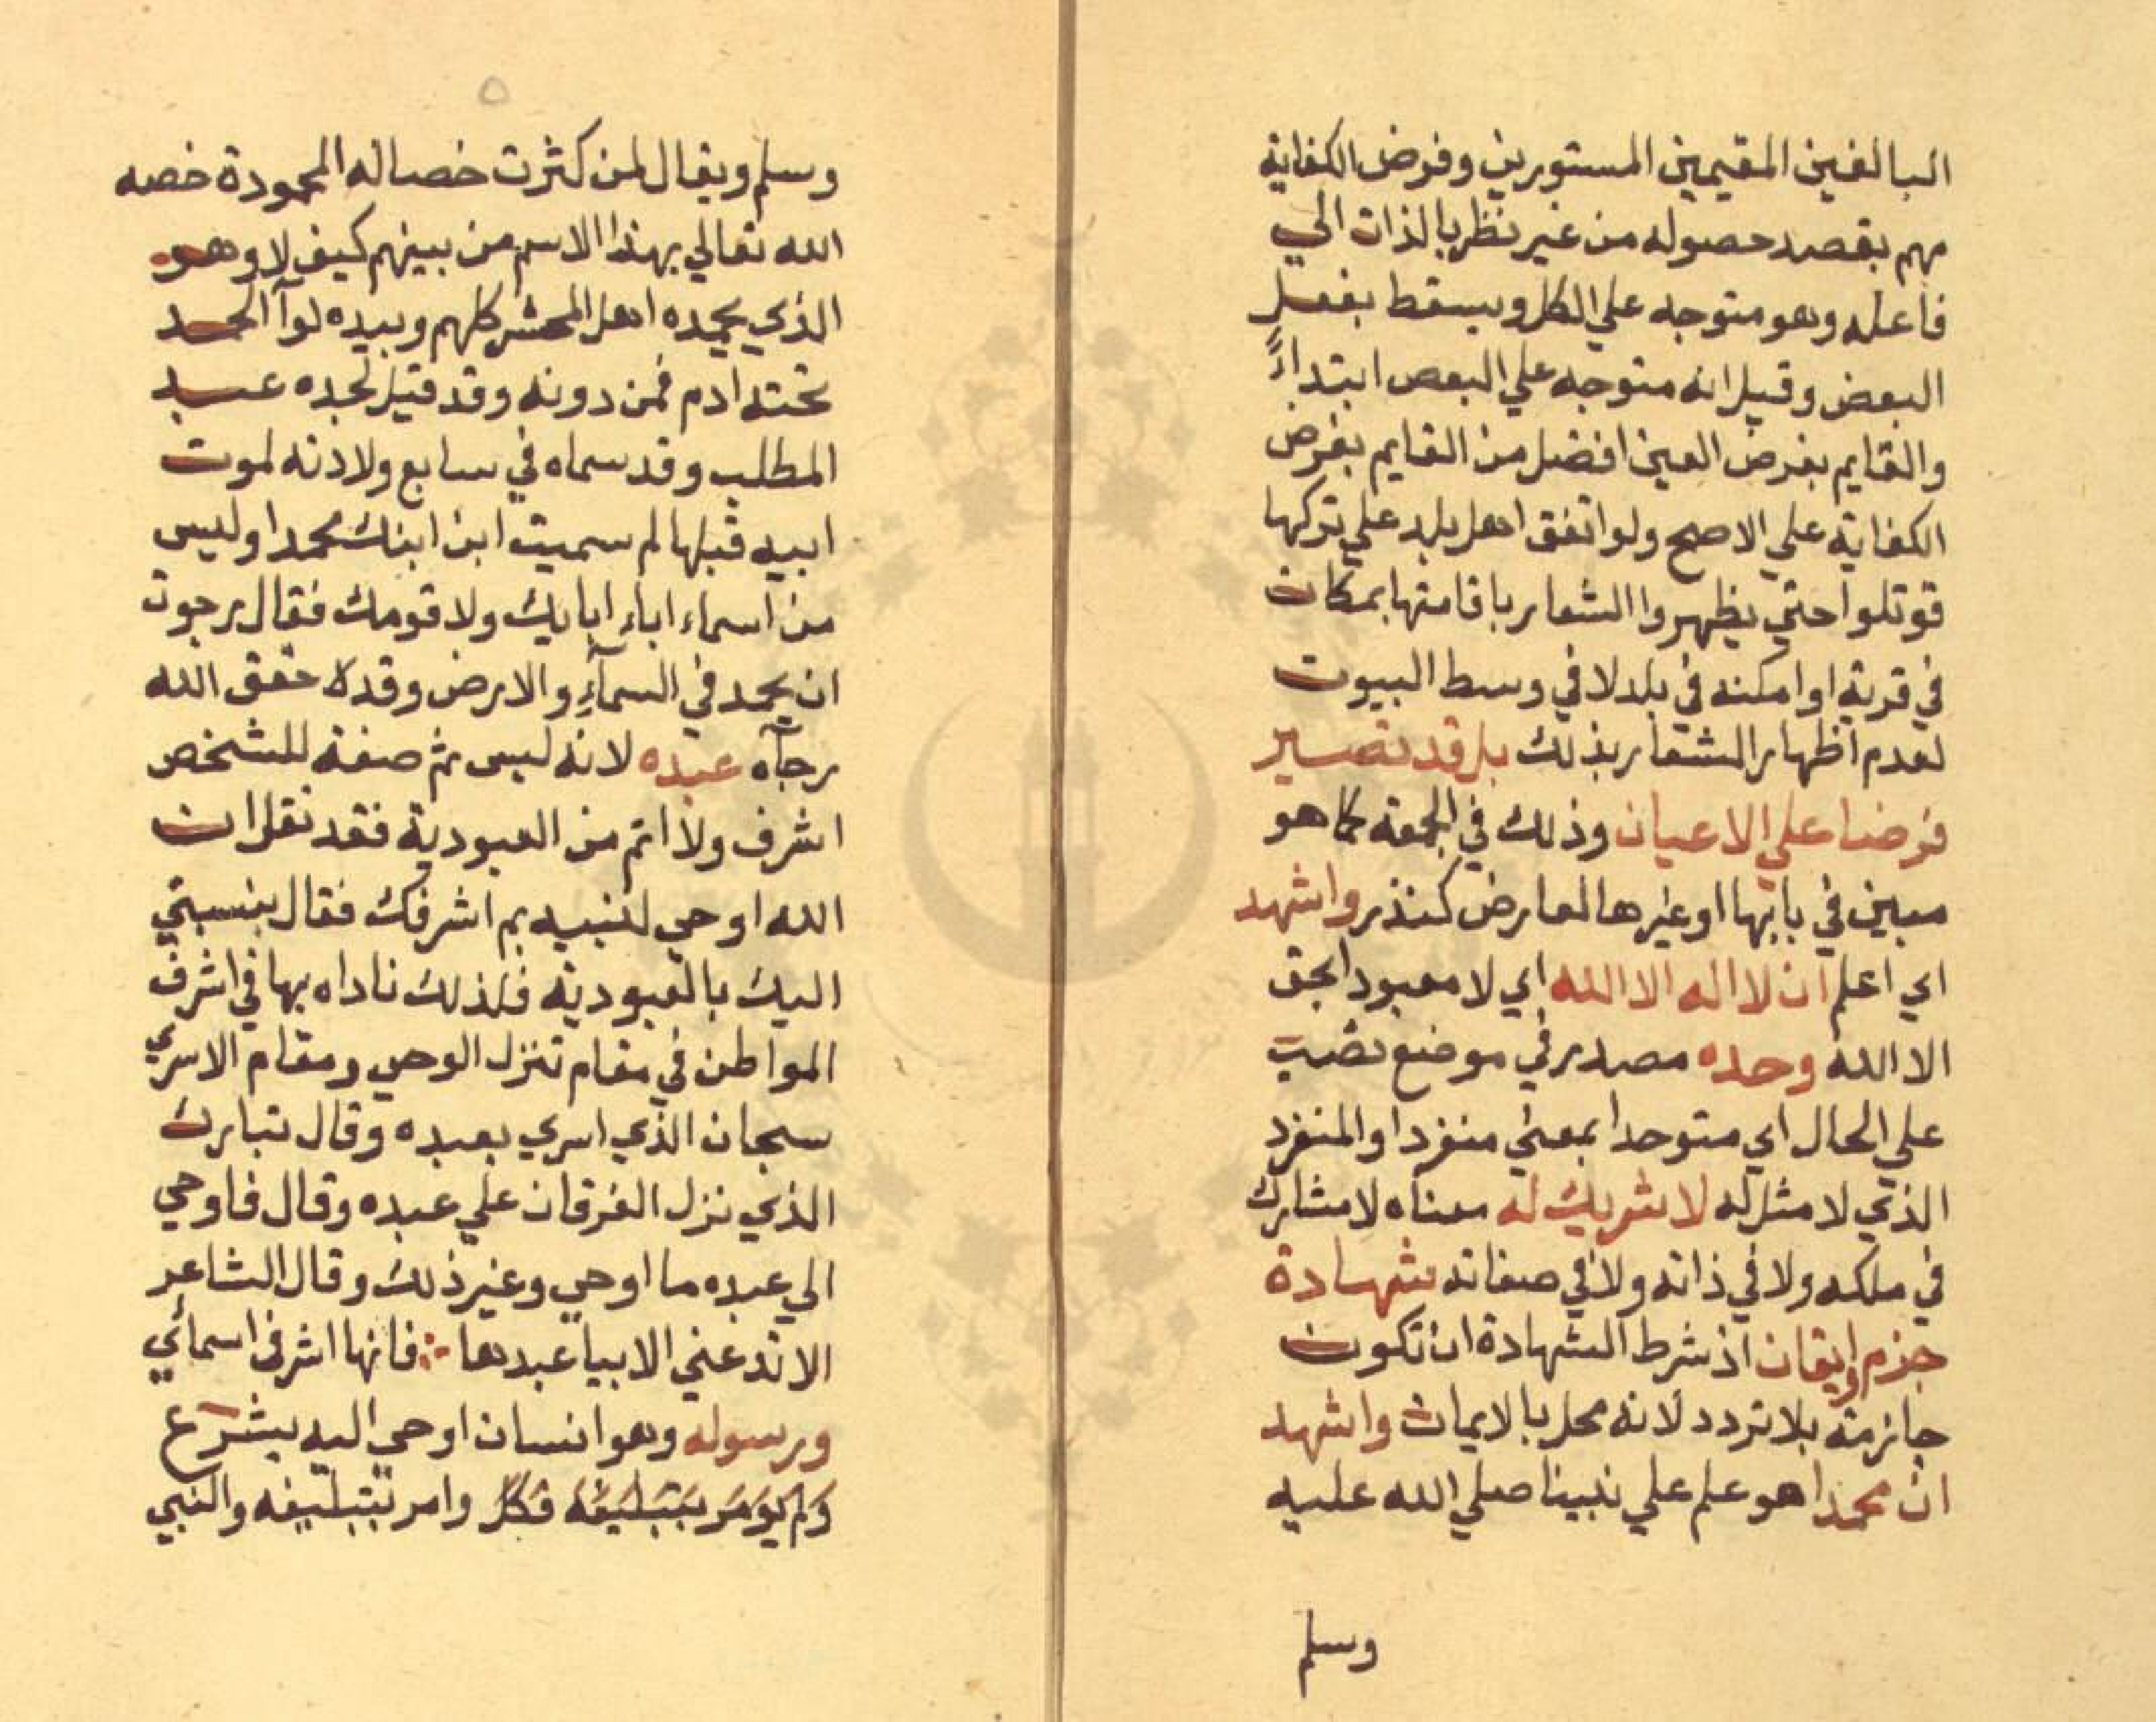 البالغين المقيمين المستورين وفرض الكفاية
مهم بقصد حصوله من غير نظر بالذات الي
فاعله وهو متوجه علي الكل ويسقط بفعل
البعض وقيل انه متوجه علي البعص ابتداءً
والقايم بفرض العين افضل من القايم بفرض
الكفاية علي الاصح ولو اتفق اهل بلد علي تركها
قوتلوا حتي يظهروا الشعار باقامتها بمكان
في قرية او امكنه في بلد لا في وسط البيوت
لعدم اظهار الشعار بذلك بل قد تصير
فرضا علي الاعيان وذلك في الجمعة كما هو
مبين في بابها او غيرها لعارض كنذر واشهد
اي اعلم ان لا اله الا الله اي لا معبود بحق
الا الله وحده مصدر في موضع نصب
علي الحال اي متوحدا بمعني منفردا والمنفرد
الذي لا مثل له لا شريك له معناه لا مشارك
في ملكه ولا في ذاته ولا في صفاته شهادة
جزم وايقان اذ شرط الشهادة ان تكون
جازمة بلا تردد لانه مخل بالايمان واشهد
ان محمدا هو علم علي نبينا صلي الله عليه
وسلم
٥
وسلم ويقال لمن كثرت خصاله المحمودة خصه
الله تعالي بهذا الاسم من بينهم كيف لا وهو
الذي يحمده اهل المحشر كلهم وبيده لوآ الحمد
تحته ادم فمن دونه وقد قيل لجده عبد
المطلب وقد سماه في سابع ولادته لموت
ابيه قبلها لم سميت ابن ابنك محمدا وليس
من اسماء اباء ابايك ولا قومك فقال رجوت
ان يحمد في السمآء والارض وقد حقق الله
رجآه عبده لانه ليس ثم صفة للشخص
اشرف ولا اتم من العبودية فقد نقل ان
الله اوحي لنبيه بم اشرفك فقال بنسبتي
اليك بالعبودية فلذلك ناداه بها في اشرف
المواطن في مقام تنزل الوحي ومقام الاسري
سبحان الذي اسري بعبده وقال تبارك
الذي نزل الفرقان علي عبده وقال فاوحي
الي عبده ما اوحي وغير ذلك وقال الشاعر
الا تدعني الا بيا عبدها ∴ فانها اشرف اسمائي
ورسوله وهو انسان اوحي اليه بشرع
ولم يومر بتبليغه فكل وامر بتبليغه والنبي